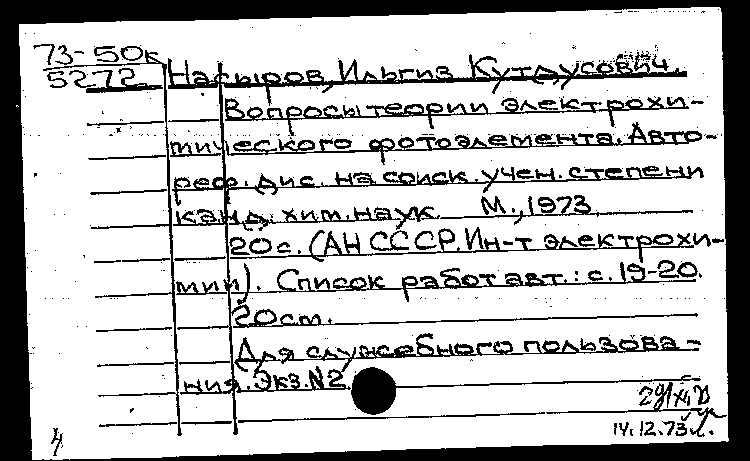 73-50к
5272
Насыров, Ильгиз Кутдусович.
Вопросы теории электрохи-
мического фотоэлемента. Авто-
реф. дис. на соиск. учен. степени
канд. хим. наук. М., 1973.
20 с. (АН СССР. Ин-т электрохи-
мии). Список работ авт.: с. 19-20.
20 см.
Для служебного пользова-
ния. Экз. №2
14.12.73